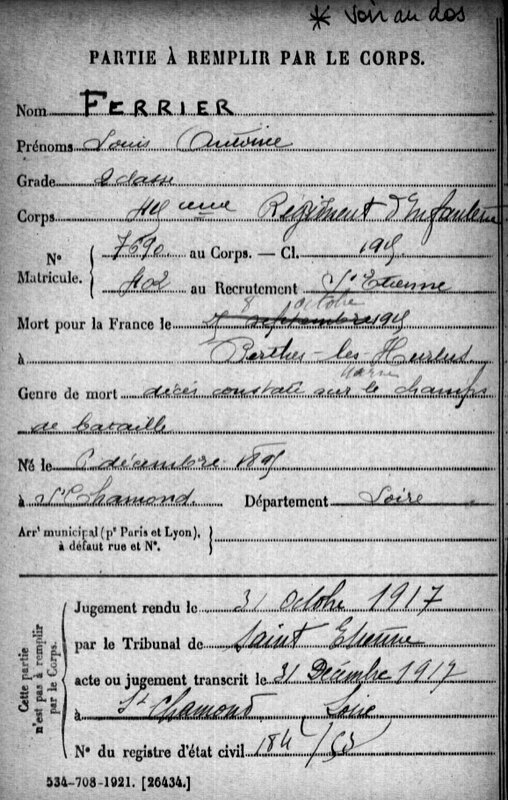 * Voir au dos
PARTIE À REMPLIR PAR LE CORPS.
Nom FERRIER
Prénoms Louis Antoine
Grade 2 classe
Corps eme Régiment d'Infanterie
N° Matricule. 7690 au Corps. — Cl. 1915
402 au Recrutement St Etienne
8 octobre
Mort pour la France le septembre 1915
à Perthes-les-Hurlus
Marne
Genre de mort décès constaté sur le champs
de bataille
Né le 6 décembre 1895
à St Chamond. Département Loire
Arrt municipal (pr Paris et Lyon),
à défaut rue et N°.
Cette partie n'est pas à remplir par le Corps.
Jugement rendu le 31 Octobre 1917
par le Tribunal de Saint Etienne
acte ou jugement transcrit le 31 Décembre 1917
à St Chamond (Loire)
N° du registre d'état civil 184/
534-708-1921. [26434.]